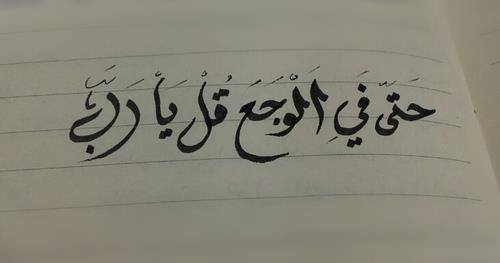 حَتىّ فَي اَلْوَجَع قُلْ يَأ رَبَّ